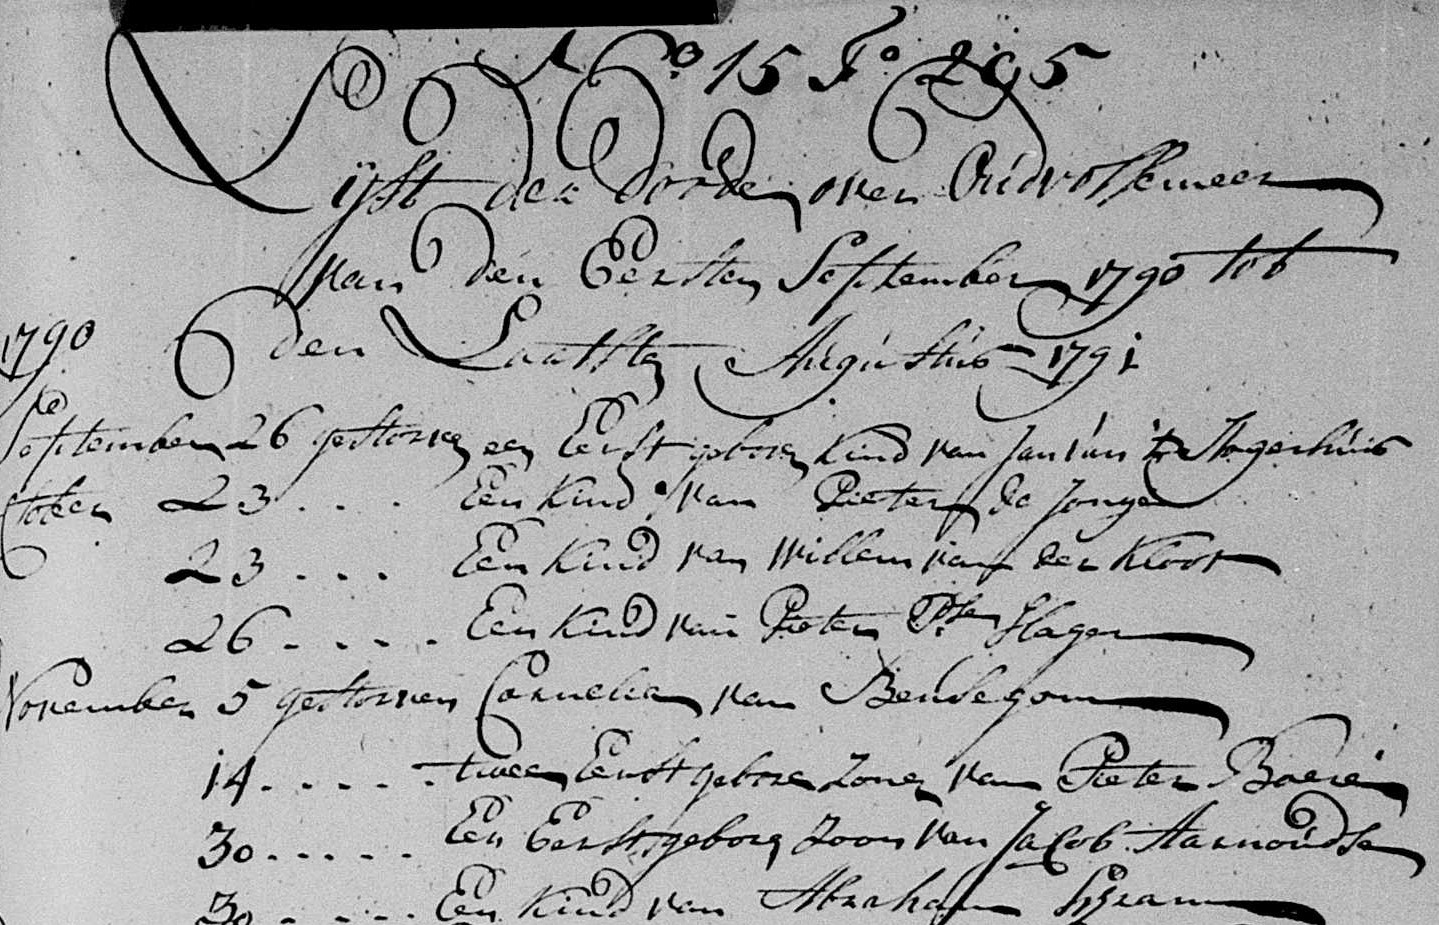 No 15 Fo 295
Lijst der Dorde over Oudvossemeer
van den Eersten September 1790 tot
1790 den Laatste Augustus 1791
September 26 gestorve een Eerst gebore Kind van Jan van
ctober 23 . . . Een Kind van Pieter de Jonge
23 . . . Een Kind van Willem van der Kloot
26 . . . . Een Kind van Pieter Pse Slager
November 5 gestorven Cornelia van Bendegom
14 . . . . . twee Eerst gebore Zone van Pieter
30 . . . . . Een Eerst gebore Zoon van Jacob Aarnoudse
30 . . . . Een Kind van Abraham